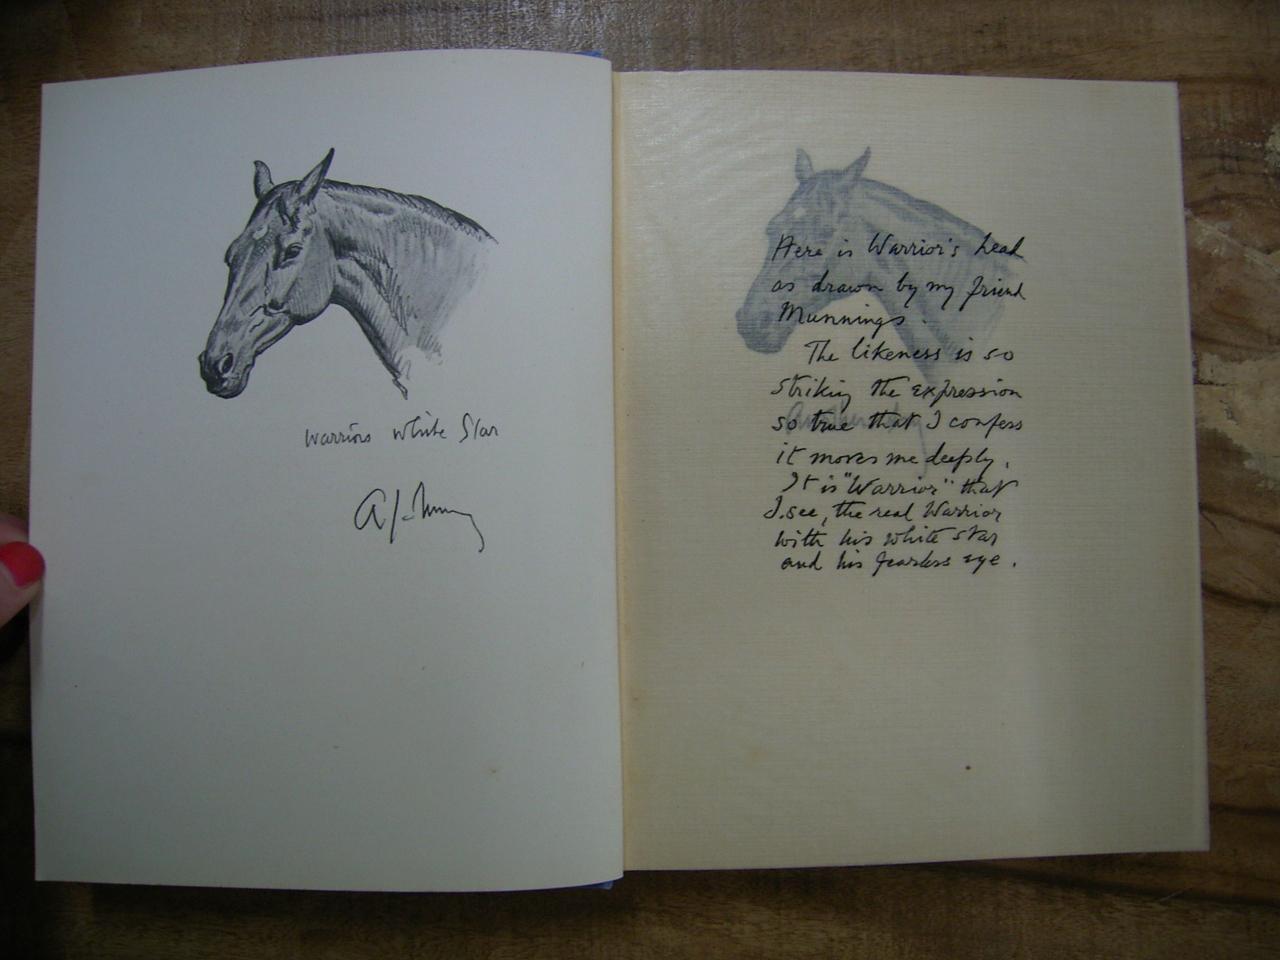 Warriors white Star
A J Munnings
Here is Warrior's head
as drawn by my friend
Munnings.
The likeness is so
striking the expression
so true that I confess
it moves me deeply.
It is "Warrior" that
I see, the real Warrior
with his white star
and his fearless eye.